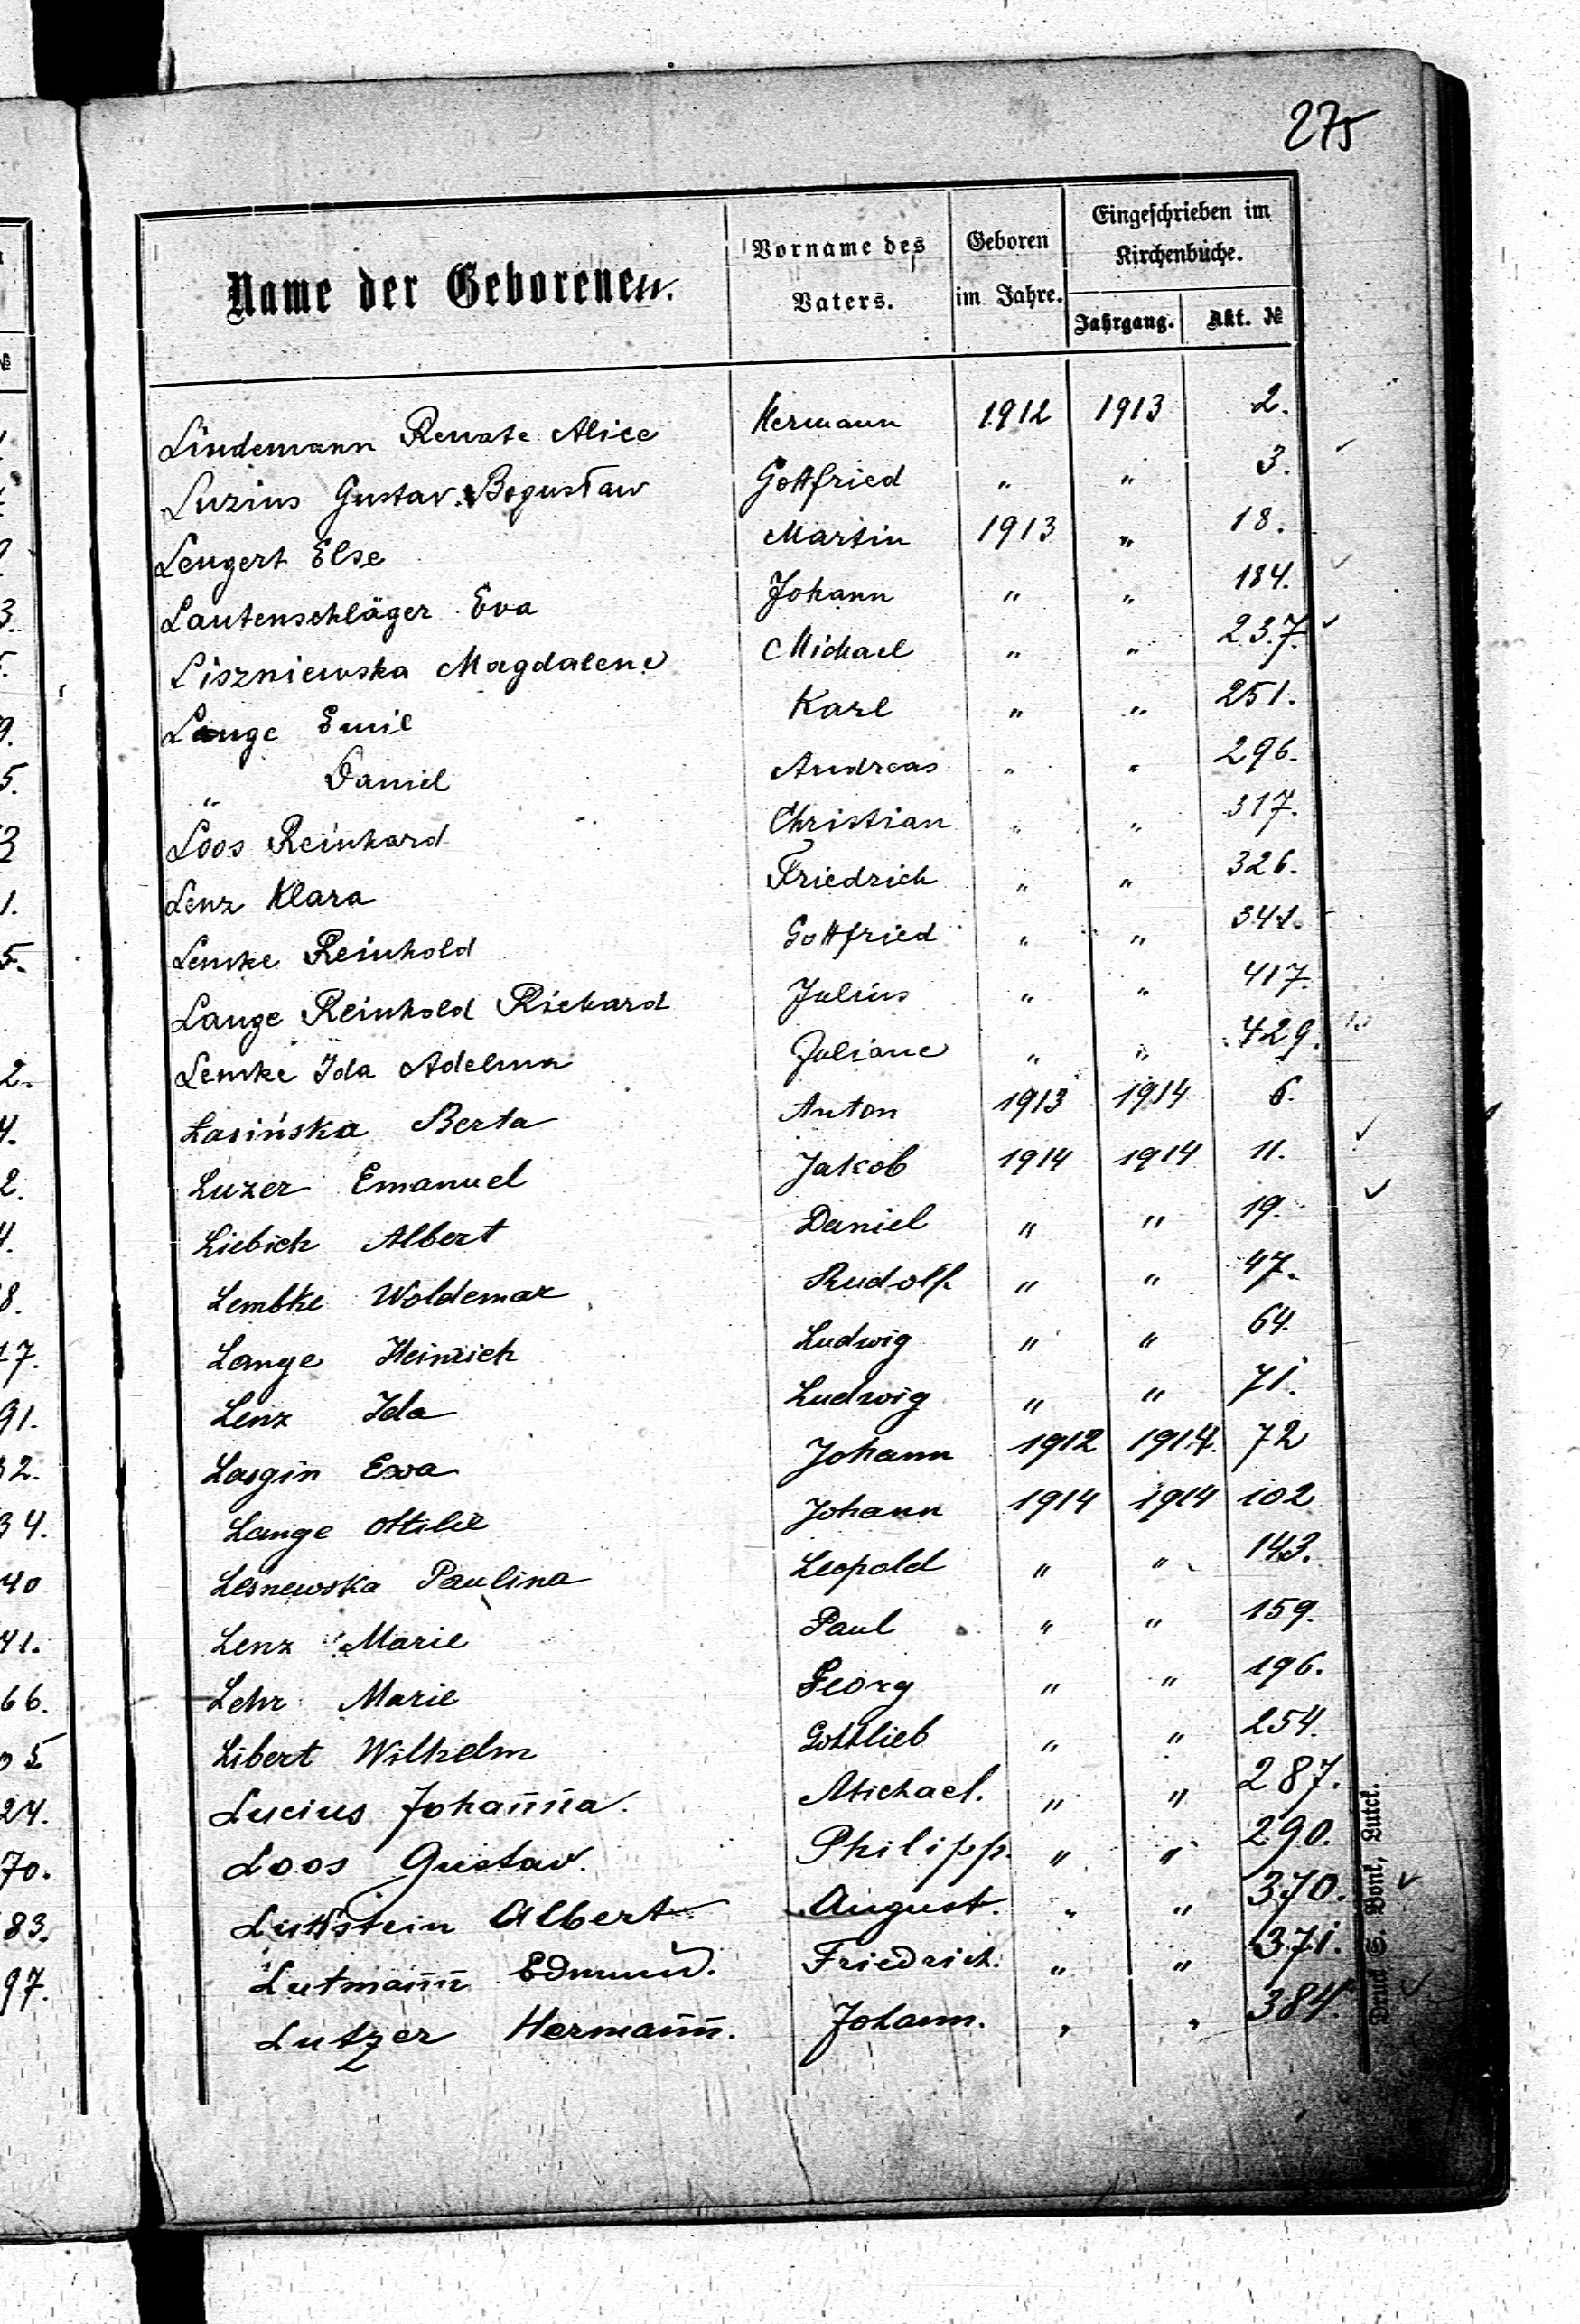 275
Name der Geborenen. Vorname des Vaters. Geboren im Jahre. Eingeschrieben im Kirchenbuche.
Jahrgang. Akt. №
Lindemann Renate Alice Hermann 1912 1913 2.
Luzius Gustav Bogusław Gottfried " " 3.
Lengert Else Martin 1913 " 18.
Lautenschläger Eva Johann " " 184.
Liszniewska Magdalene Michael " " 237.
Lange Emil Karl " " 251.
" Daniel Andreas " " 296.
Loos Reinhard Christian " " 317.
Lenz Klara Friedrich " " 326.
Lemke Reinhold Gottfried " " 341.
Lange Reinhold Richard Julius " " 417.
Lemke Ida Adelma Juliane " " 429.
Łasińska Berta Anton 1913 1914 6.
Luzer Emanuel Jakob 1914 1914 11.
Liebich Albert Daniel " " 19.
Lembke Woldemar Rudolf " " 47.
Lange Heinrich Ludwig " " 64.
Lenz Ida Ludwig " " 71.
Lasgin Ewa Johann 1912 1914. 72
Lange Ottilie Johann 1914 1914 102
Lesnewska Paulina Leopold " " 143.
Lenz Marie Paul " " 159.
Lehr Marie Georg " " 196.
Libert Wilhelm Gottlieb " " 254.
Lucius Johanna. Michael. " " 287.
Loos Gustav. Philipp. " " 290.
Albert. August. " " 370.
Lutmann Edmund. Friedrich. " " 371.
Lutzer Hermann. Johann. " " 384.
Druck S. Bonk, Lutck.